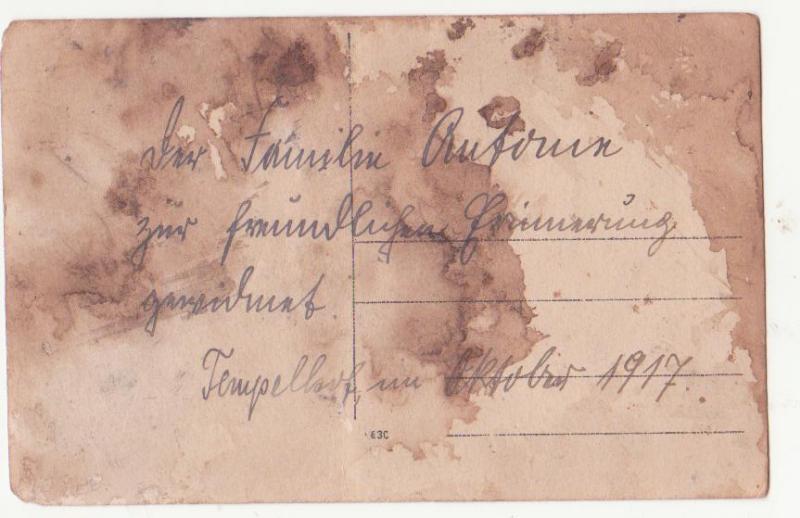 Der Familie Antonie
zur freundlichen Erinnerung
gewidmet.
Tempelhof, im Oktober 1917.
63C